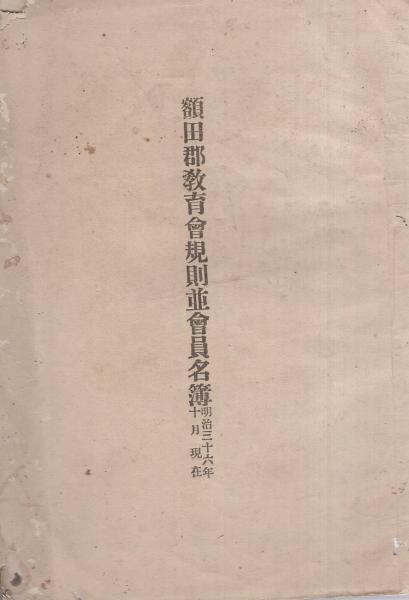 額田郡教育會規則並會員名簿
明治三十六年
十月現在